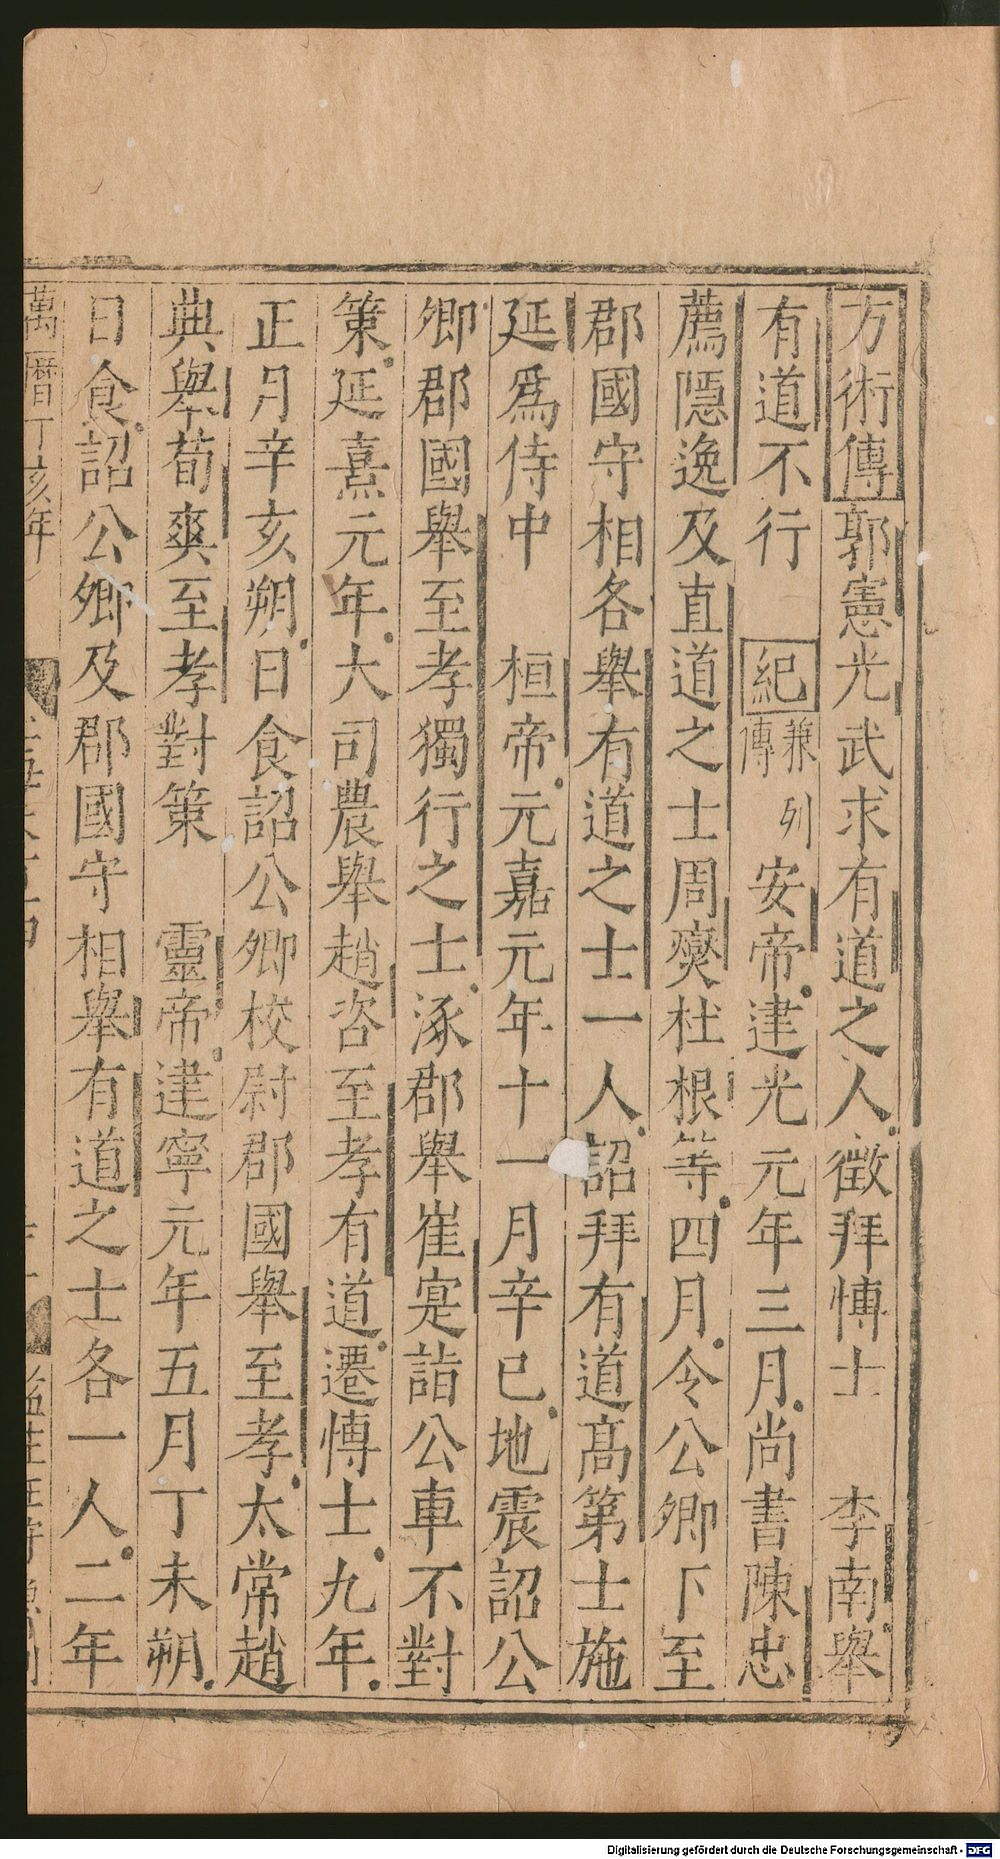 方術傳郭憲光武求有道之人徵拜愽士　李南舉
有道不行　紀兼列傳安帝建光元年三月尚書陳忠
薦隱逸及直道之士周爕杜根等四月令公卿下至
郡國守相各舉有道之士一人詔拜有道高第士施
延爲侍中　桓帝元嘉元年十一月辛巳地震詔公
卿郡國舉至孝獨行之士涿郡舉崔寔詣公車不對
策延熹元年大司農舉趙咨至孝有道遷愽士九年
正月辛亥朔日食詔公卿校尉郡國舉至孝太常趙
典舉荀爽至孝對策　靈帝建寧元年五月丁未朔
日食詔公卿及郡國守相舉有道之士各一人二年
萬曆丁亥年
Digitalisierung gefördert durch die Deutsche Forschungsgemeinschaft - DFG